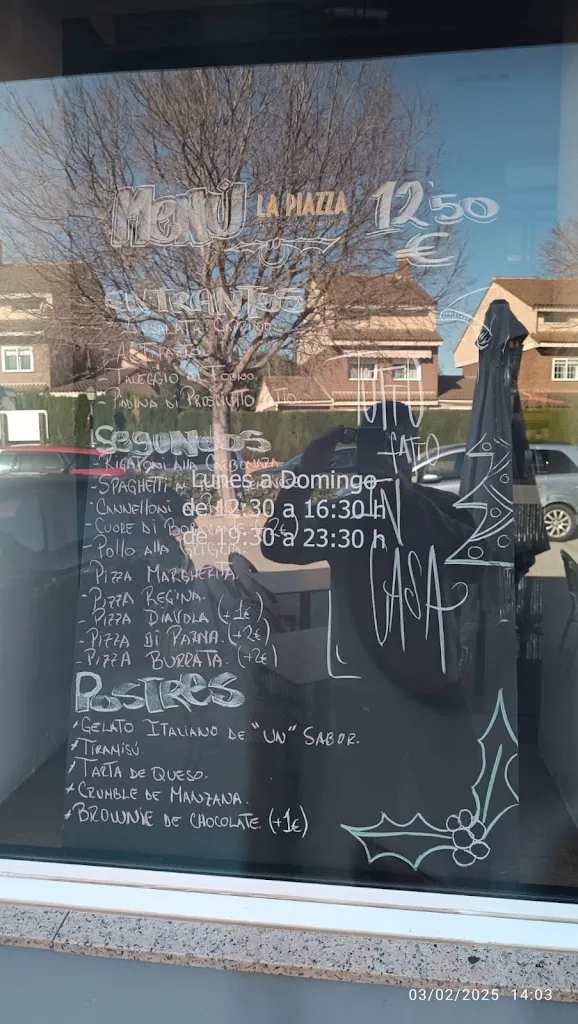 MENÚ LA PIAZZA 12'50 €
ENTRANTES
- PALEGGIO
- PADINA DI PROSCIUTO
SEGUNDOS
- RIGATONI ALLA CARBONARA
- SPAGHETTI
- CANNELLONI
- CUORE DI
- POLLO ALLA
- PIZZA MARGHERITA.
- PIZZA REGINA.
- PIZZA DIAVOLA (+1€)
- PIZZA DI PARMA. (+2€)
- PIZZA BURRATA. (+2€)
POSTRES
* GELATO ITALIANO DE "UN" SABOR.
* TIRAMISÚ.
* TARTA DE QUESO.
* CRUMBLE DE MANZANA.
* BROWNIE DE CHOCOLATE. (+1€)
FATTO
IN
CASA
Lunes a Domingo
de 12:30 a 16:30 h
de 19:30 a 23:30 h
03/02/2025 14:03